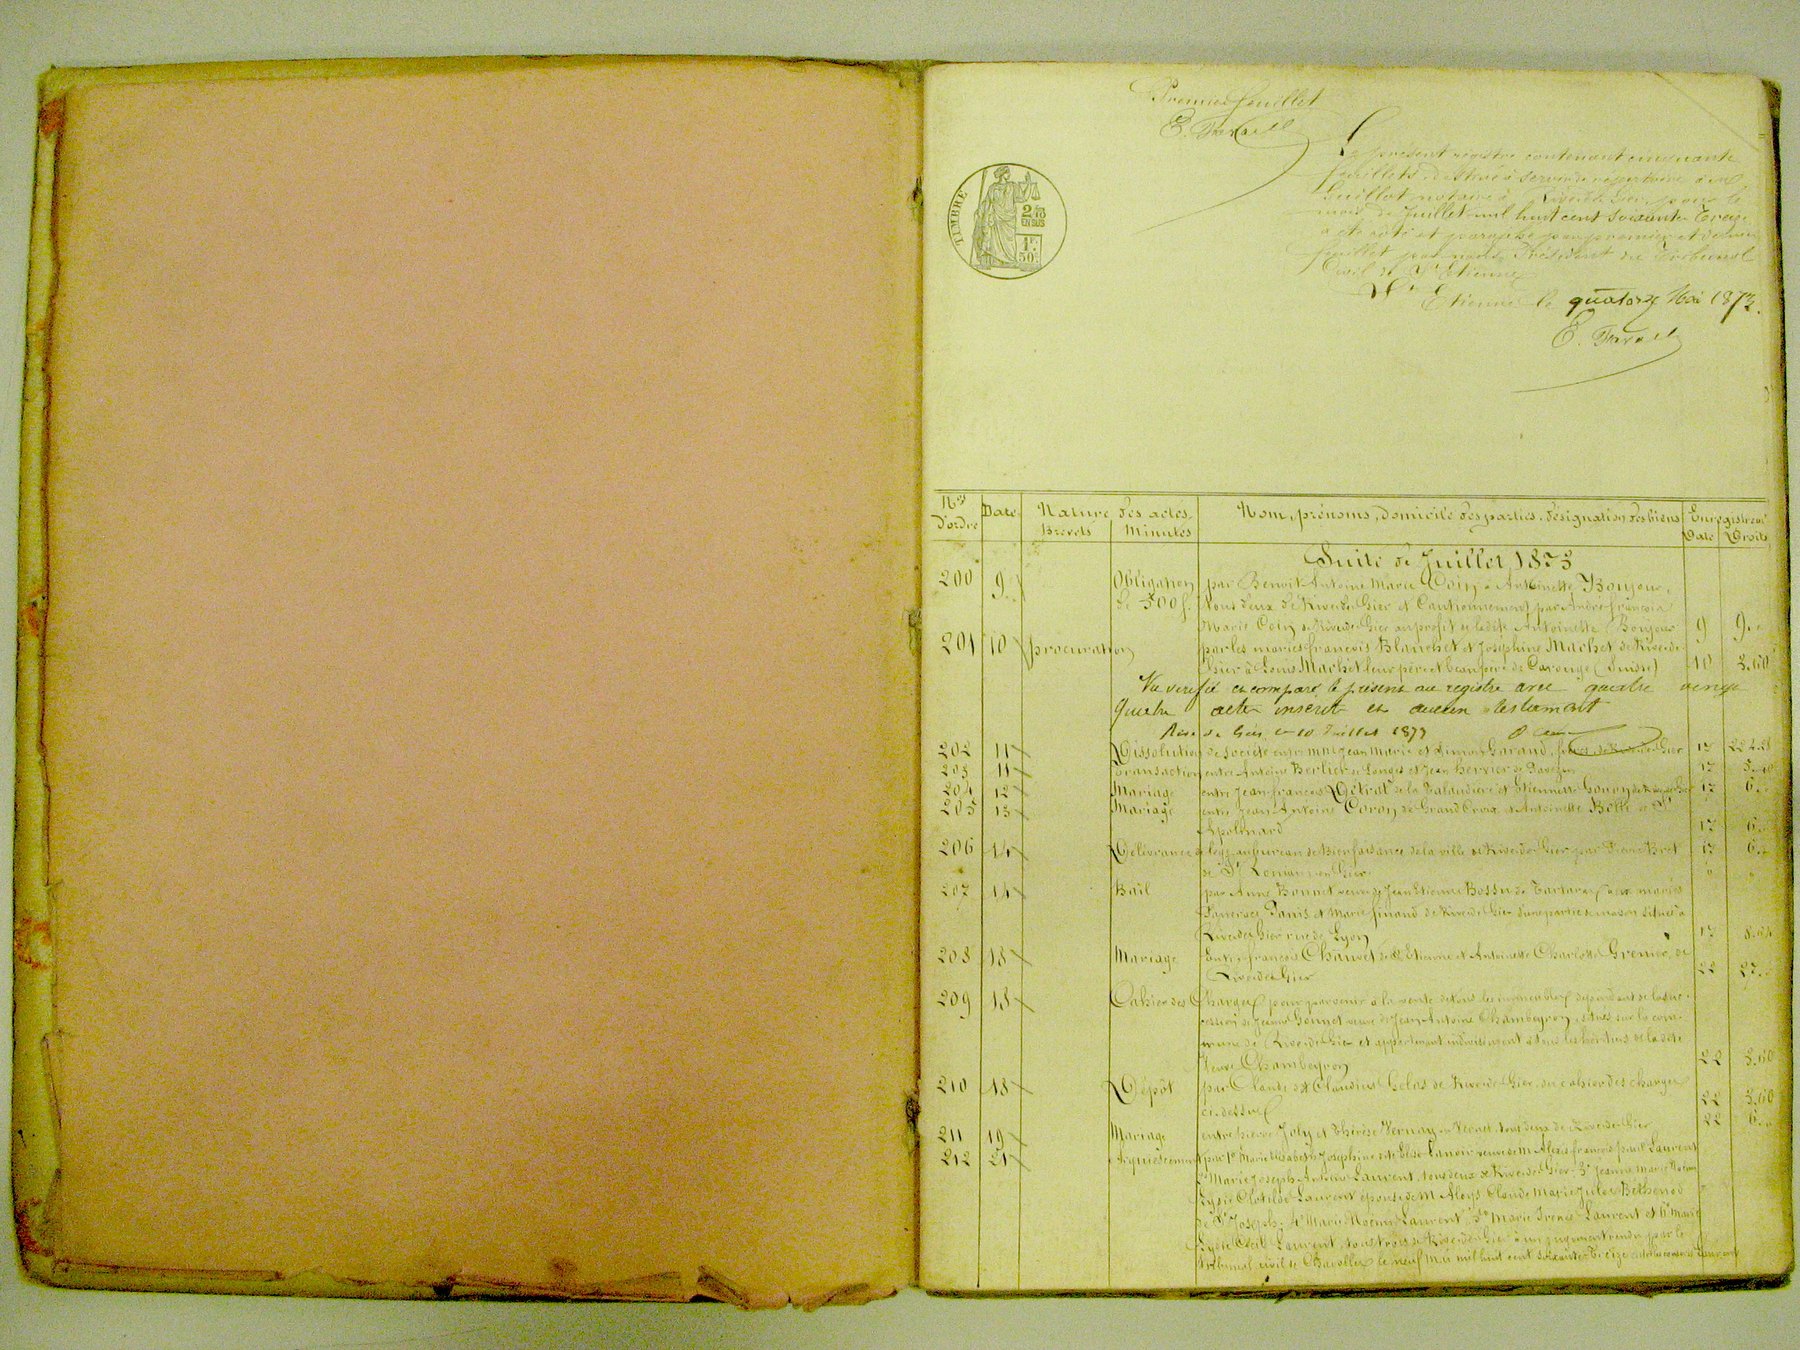 Premier feuillet
E. 
TIMBRE
2/10
EN SUS
1F.
50c.
Le présent registre contenant cinquante
feuillets, destiné à servir de répertoire à Me
Guillot notaire à Rive de Gier, pour le
mois de Juillet mil huit cent soixante treize
a été coté et paraphé par premier et dernier
feuillet par nous Président du Tribunal
Civil de St Etienne
St Etienne le quatorze Mai 1873.
E.
Nos d'ordre Date Nature des actes. Nom, prénoms, domicile des parties, désignation des biens Enregistremt
Brevets Minutes Date Droits
Suite de Juillet 1873
200 9 Obligation par Benoit Antoine Marie Coin à Antoinette Bonjour,
de 500 f. tous deux de Rive de Gier et Cautionnement par André françois
Marie Coin de Rive de Gier au profit de ladite Antoinette Bonjour 9 9. "
201 10 procuration par les mariés françois Blanchet et Joséphine Machet de Rive de
Gier à Louis Machet leur père et beau père de Carouge (Suisse) 10 3.60
Vu vérifié et comparé le présent au registre avec quatre vingt
quatre actes inscrits et aucun testament
Rive de Gier le 10 Juillet 1873
202 11 Dissolution de société entre MM. Jean Marie et Simon Garand, de Rive de Gier 17
203 11 Transaction entre Antoine Berlier de Longes et Jean Hervier de 17
204 12 Mariage entre Jean françois Détrat de la Valaudière et Etiennette de Rive de Gier 17 6. "
205 13 Mariage entre Jean Antoine Coron de Grand Croix et Antoinette Bolle de St
Apolinard 17 6. "
206 14 Délivrance de legs au bureau de Bienfaisance de la ville de Rive de Gier par Bret 17 6. "
de St Romain en Gier " "
207 14 Bail par Anne Bonnet veuve de Jean Etienne Bossu de Tartaras à mariés
Janis et Marie finaud de Rive de Gier d'une partie de maison située à
Rive de Gier rue de Lyon 17
208 18 Mariage Entre françois Chauvet de St Etienne et Antoinette Charlotte Grenier de
Rive de Gier 22 27. "
209 18 Cahier des Charges pour parvenir à la vente de tous les immeubles dépendant de la suc-
cession de Jeanne Gonnet veuve de Jean Antoine Chambeyron, situés sur la com-
mune de Rive de Gier et appartenant indivisément à tous les héritiers de la dite
Veuve Chambeyron 22 3.60
210 18 Dépôt par Claude dit Claudius de Rive de Gier, du cahier des charges
ci-dessus 22 3.60
211 19 Mariage entre pierre Joly et Thérèse Vernay tous deux de Rive de Gier 22 6. "
212 21 Acquiescement par 1° Marie Elisabeth Joséphine dite Elise Lanoir veuve de M. Alexis françois Laurent
2° Marie Joseph Antoine Laurent, tous deux de Rive de Gier 3° Jeanne Marie Noémi
Lydie Clotilde Laurent épouse de M. Aloys Claude Marie Jules Bethenod
de St Joseph; 4° Marie Noémie Laurent 5° Marie Irénée Laurent et 6° Marie
Lydie Laurent, tous trois de Rive de Gier à un jugement rendu par le
Tribunal civil de le neuf Mai mil huit cent soixante treize